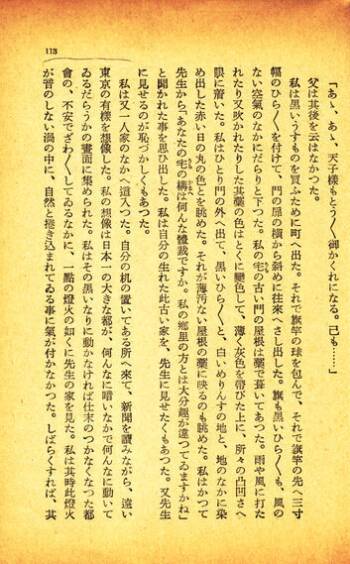 113
「あゝ、あゝ、天子様もとう〳〵御かくれになる。己も……」
父は其後を云はなかつた。
私は黒いうすものを買ふために町へ出た。それで旗竿の球を包んで、それで旗竿の先へ三寸
幅のひら〳〵を付けて、門の扉の横から斜めに往來へさし出した。旗も黒いひら〳〵も、風の
ない空氣のなかにだらりと下つた。私の宅の古い門の屋根は藁で葺いてあつた。雨や風に打た
れたり又吹かれたりした其藁の色はとくに變色して、薄く灰色を帶びた上に、所々の凸凹さへ
眼に着いた。私はひとり門の外へ出て、黒いひら〳〵と、白いめりんすの地と、地のなかに染
め出した赤い日の丸の色とを眺めた。それが薄汚ない屋根の藁に映るのも眺めた。私はかつて
先生から「あなたの宅の構は何んな體裁ですか。私の郷里の方とは大分趣が違つてゐますかね」
と聞かれた事を思ひ出した。私は自分の生れた此古い家を、先生に見せたくもあつた。又先生
に見せるのが恥づかしくもあつた。
私は又一人家のなかへ這入つた。自分の机の置いてある所へ來て、新聞を讀みながら、遠い
東京の有樣を想像した。私の想像は日本一の大きな都が、何んなに暗いなかで何んなに動いて
ゐるだらうかの畫面に集められた。私はその黒いなりに動かなければ仕末のつかなくなつた都
會の、不安でざわ〳〵してゐるなかに、一點の燈火の如くに先生の家を見た。私は其時此燈火
が音のしない渦の中に、自然と捲き込まれてゐる事に氣が付かなかつた。しばらくすれば、其